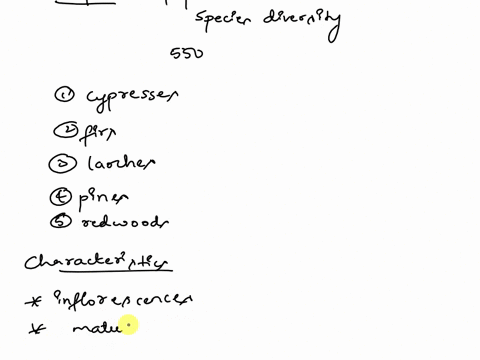 species diversity
550
① cypresses
② firs
③ larches
④ pines
⑤ redwoods
Characteristics
* inflorescences
* matu